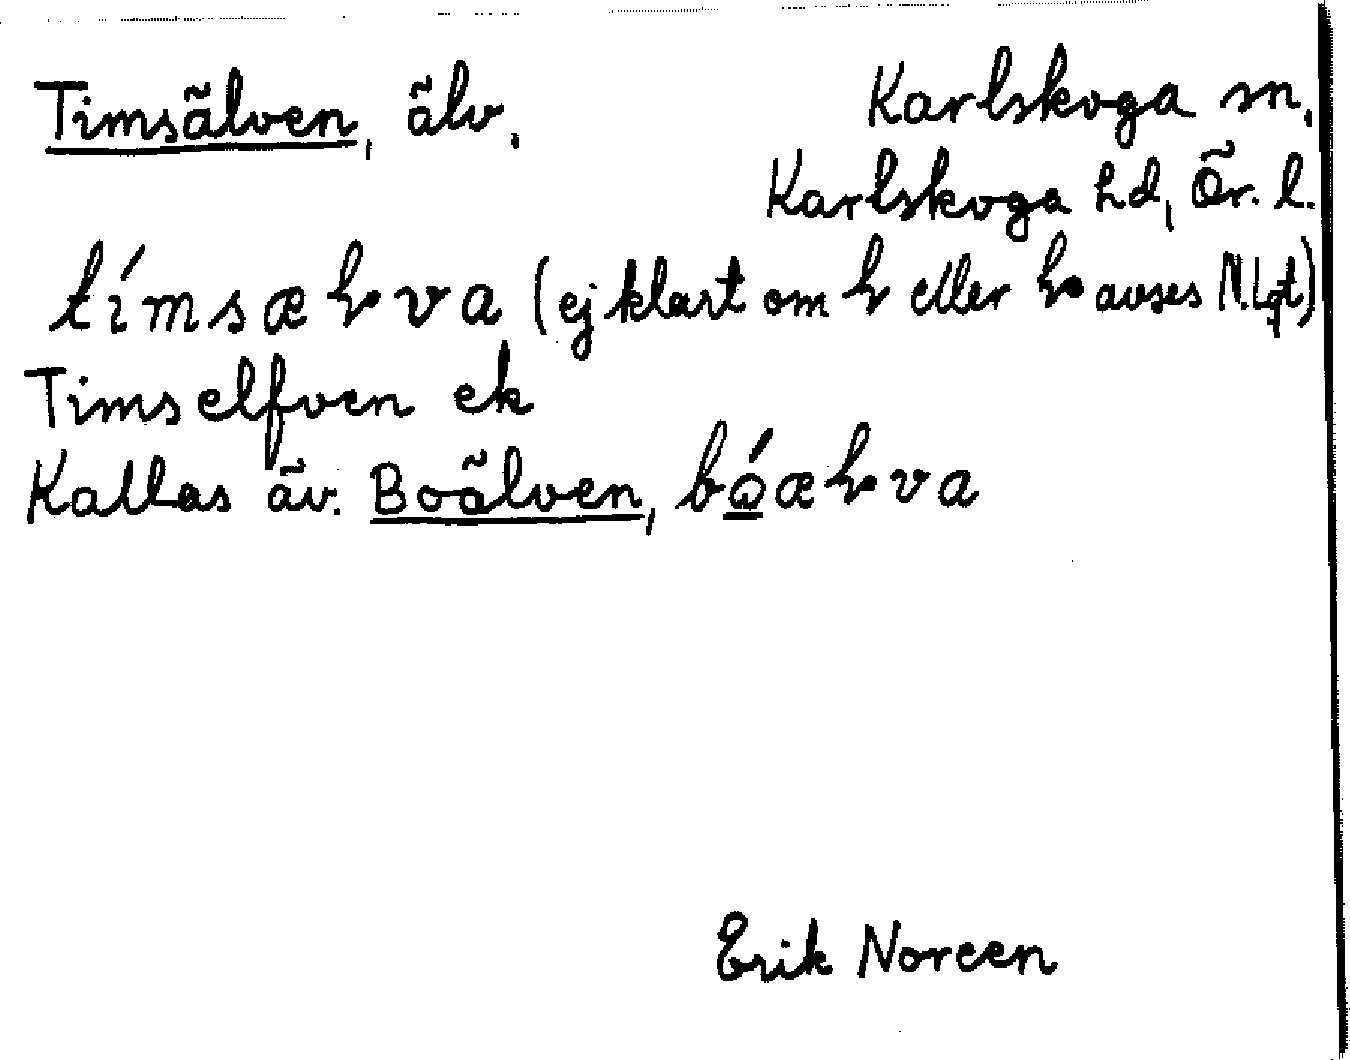 Timsälven, älv. Karlskoga sn.
Karlskoga hd, Ör. l.
tímsæɫva (ej klart om eller avses
Timselfven ek
Kallas äv. Boälven, bó̲æɫva
Erik Noreen